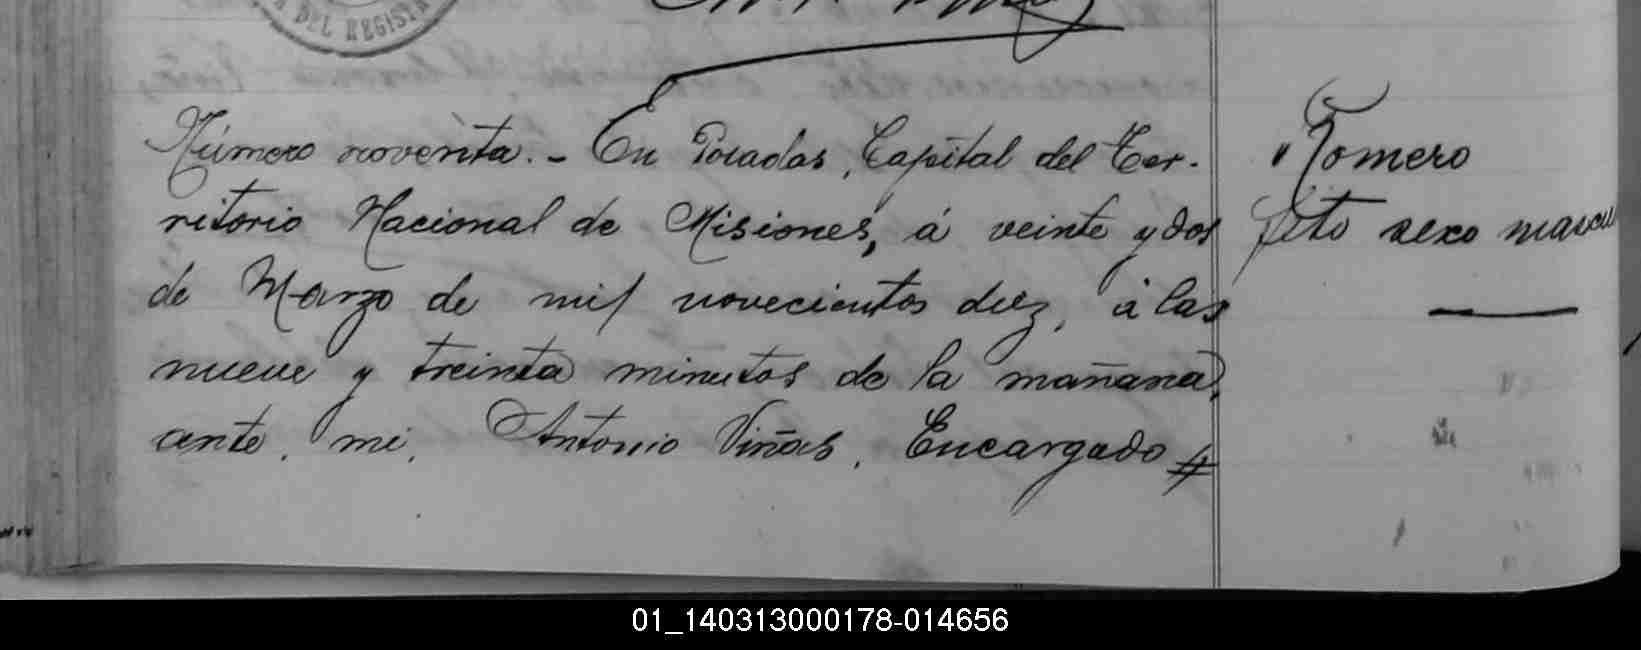 DEL REGISTR
Número noventa.- En Posadas, Capital del Ter-
ritorio Nacional de Misiones, á veinte y dos
de Marzo de mil novecientos diez, á las
nueve y treinta minutos de la mañana,
ante, mi, Antonio Viñas, Encargado #
Romero
feto sexo mascu
01_140313000178-014656